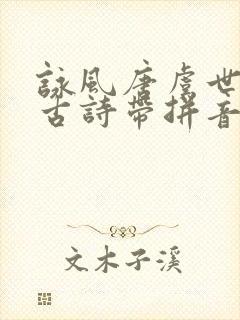 詠風唐虞世
古詩帶拼音
文木子溪